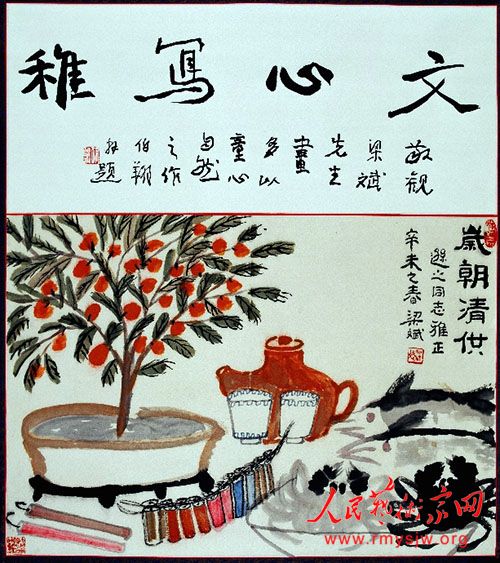 文心寫稚
敬观
梁斌
先生
畫
多以
童心
自然
之作
伯翔
題
歲朝清供
之同志雅正
辛未之春 梁斌
人民藝術家网
www.rmysjw.org